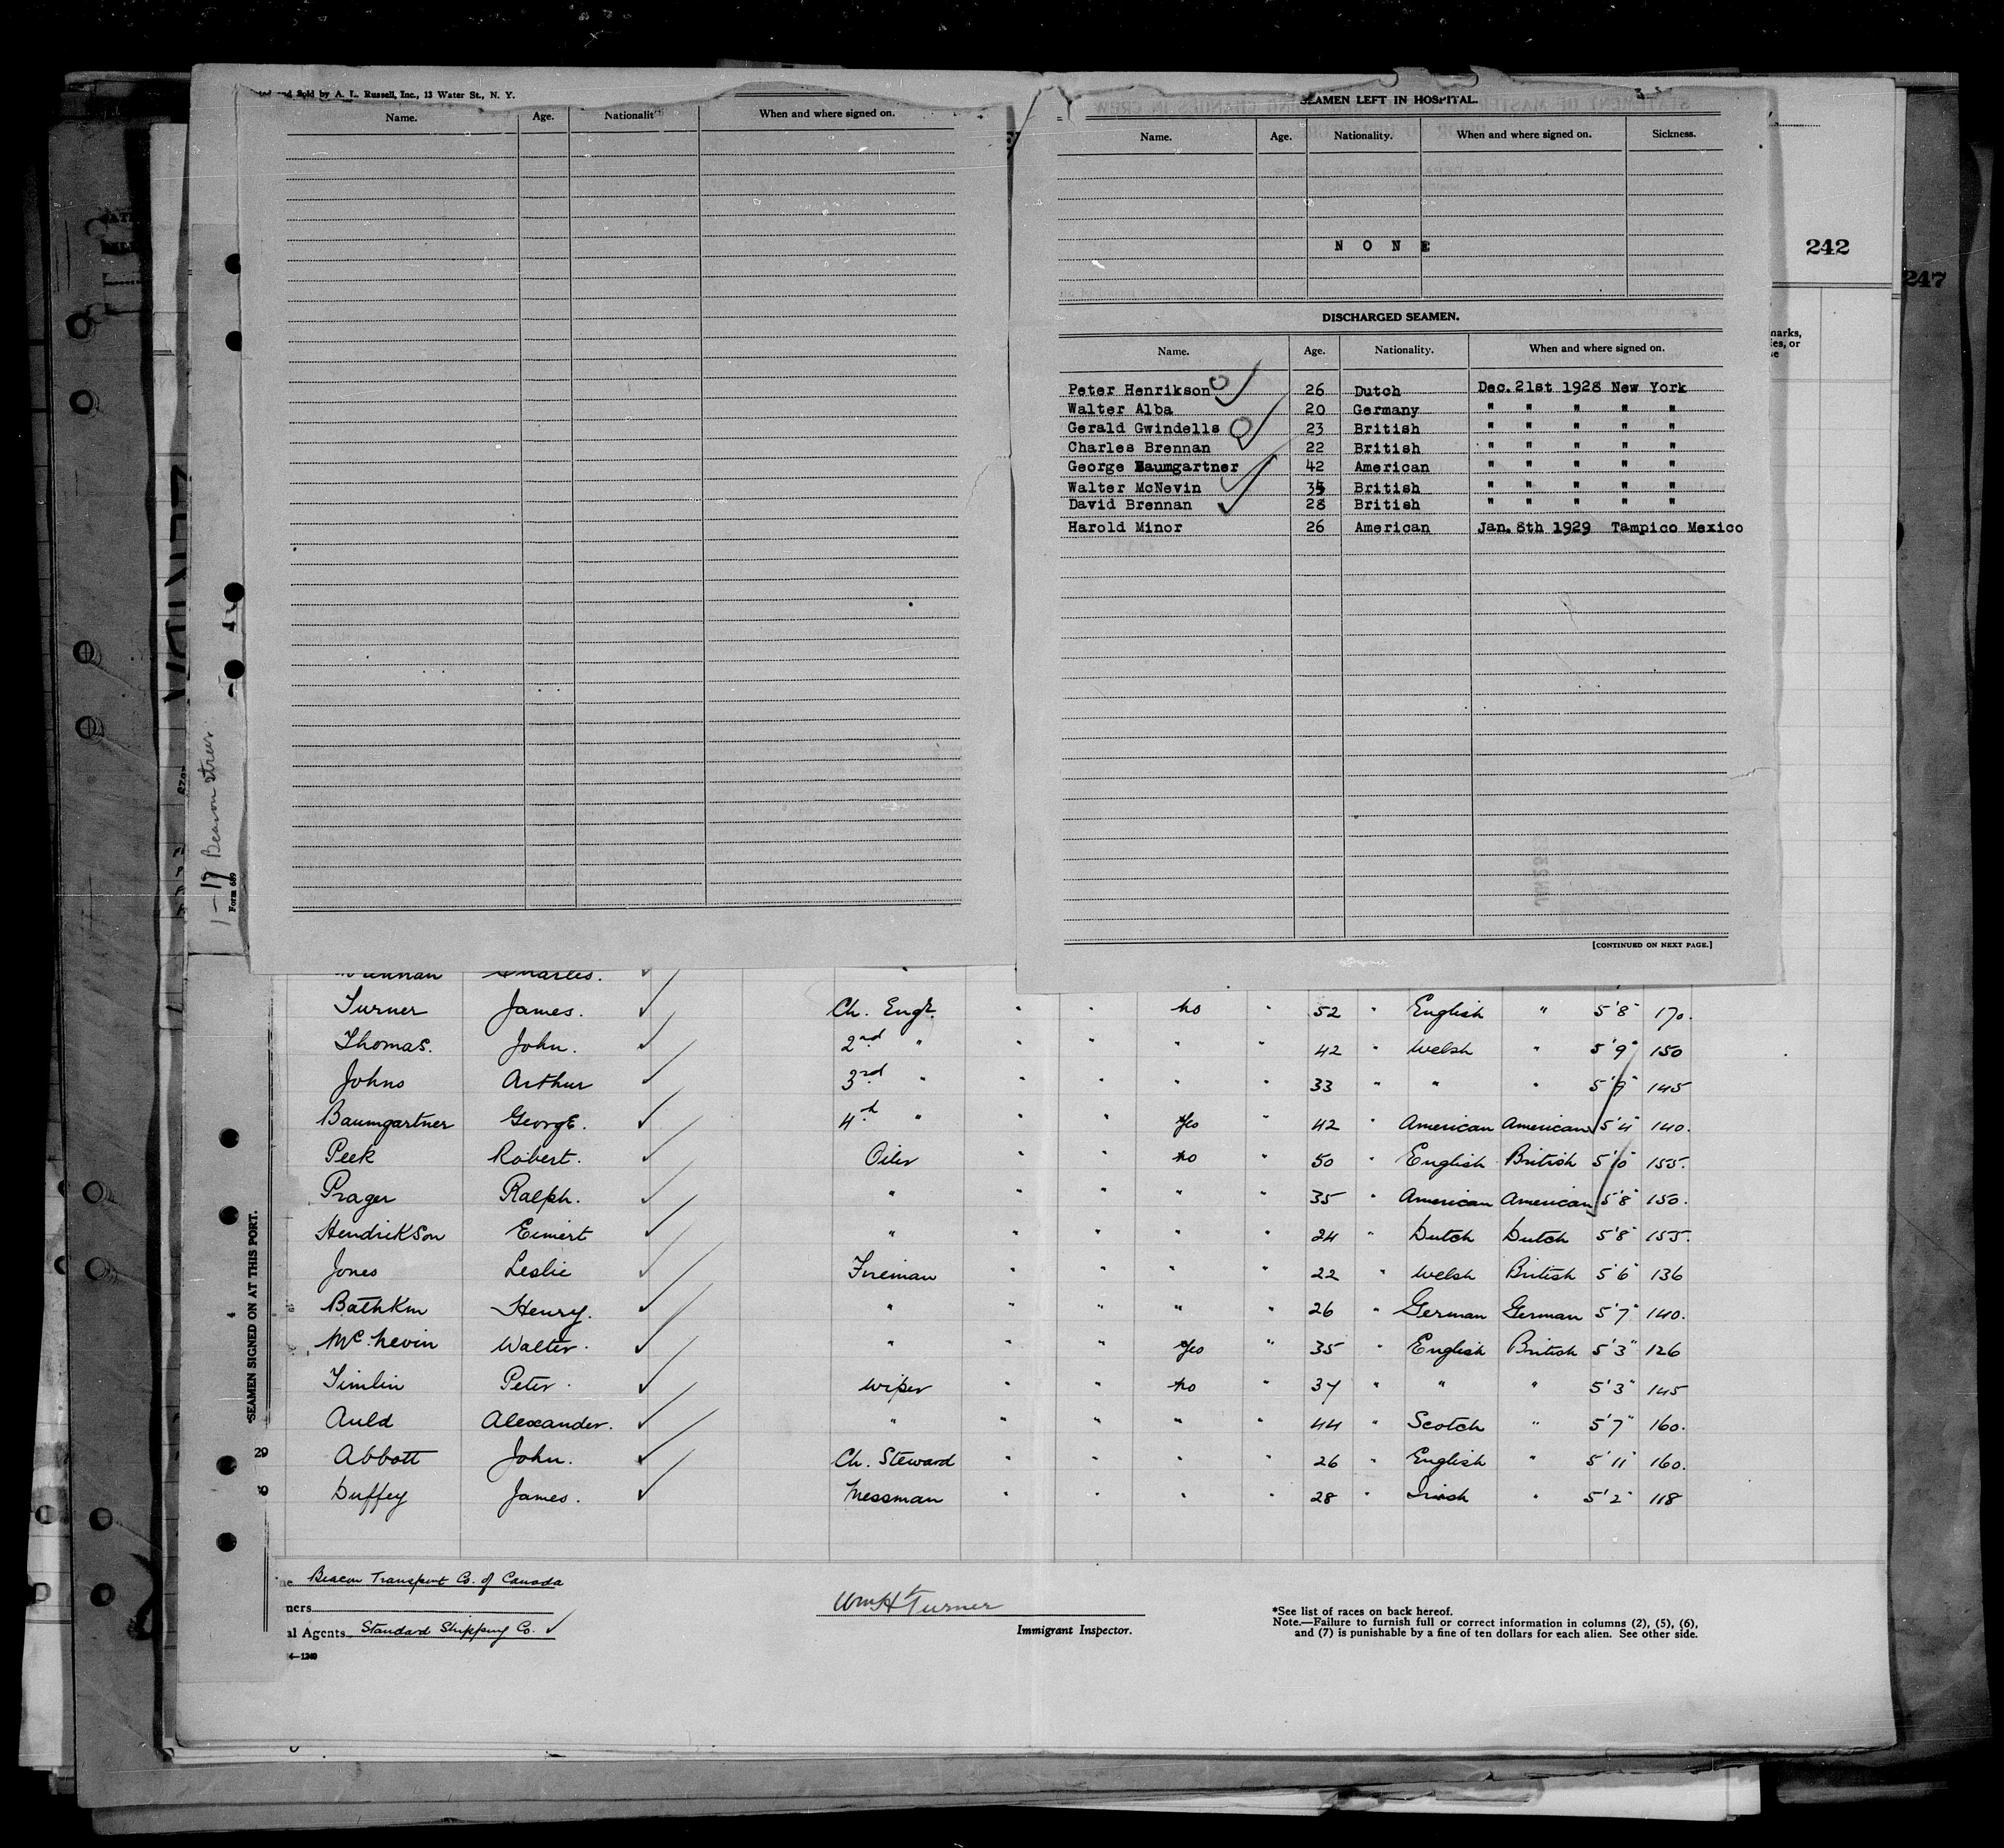 and Sold by A. L. Russell, Inc., 13 Water St., N. Y.
Name. Age. Nationalit When and where signed on.
SEAMEN LEFT IN HOSPITAL.
Name. Age. Nationality. When and where signed on. Sickness.
N O N E
242
247
marks,
ies, or
DISCHARGED SEAMEN.
Name. Age. Nationality. When and where signed on.
Peter Henrikson 26 Dutch Dec. 21st 1928 New York
Walter Alba 20 Germany " " " " "
Gerald Gwindells 23 British " " " " "
Charles Brennan 22 British " " " " "
George Baumgartner 42 American " " " " "
Walter McNevin 35 British " " " " "
David Brennan 28 British " " " " "
Harold Minor 26 American Jan. 8th 1929 Tampico Mexico
[CONTINUED ON NEXT PAGE.]
1-17 Beacon
Form 689
Brennan Charles.
Turner James. Ch. Engr. " " no " 52 " English " 5'8" 170.
Thomas. John. 2nd " " " " " 42 " Welsh " 5'9" 150
Johns Arthur 3rd " " " " " 33 " " " 5'9" 145
Baumgartner George. 4th " " " Yes " 42 " American American 5'4" 140.
Peek Robert. Oiler " " no " 50 " English British 5'6" 155.
Prager Ralph. " " " " " 35 " American American 5'8" 150.
Hendrikson Eimert " " " " " 24 " Dutch Dutch 5'8" 155.
Jones Leslie Fireman " " " " 22 " Welsh British 5'6" 136
Bathkm Henry. " " " " " 26 " German German 5'7" 140.
Mc.Nevin Walter. " " " Yes " 35 " English British 5'3" 126
Timlin Peter. Wiper " " no " 37 " " " 5'3" 145
Auld Alexander. " " " " " 44 " Scotch " 5'7" 160.
29 Abbott John. Ch. Steward " " " " 26 " English " 5'11" 160.
Duffey James. Messman " " " " 28 " Irish " 5'2" 118
SEAMEN SIGNED ON AT THIS PORT.
Beacon Transport Co. of Canada
ners
al Agents Standard Shipping Co.
4—1240
Wm H Turner
Immigrant Inspector.
*See list of races on back hereof.
Note.—Failure to furnish full or correct information in columns (2), (5), (6),
and (7) is punishable by a fine of ten dollars for each alien. See other side.